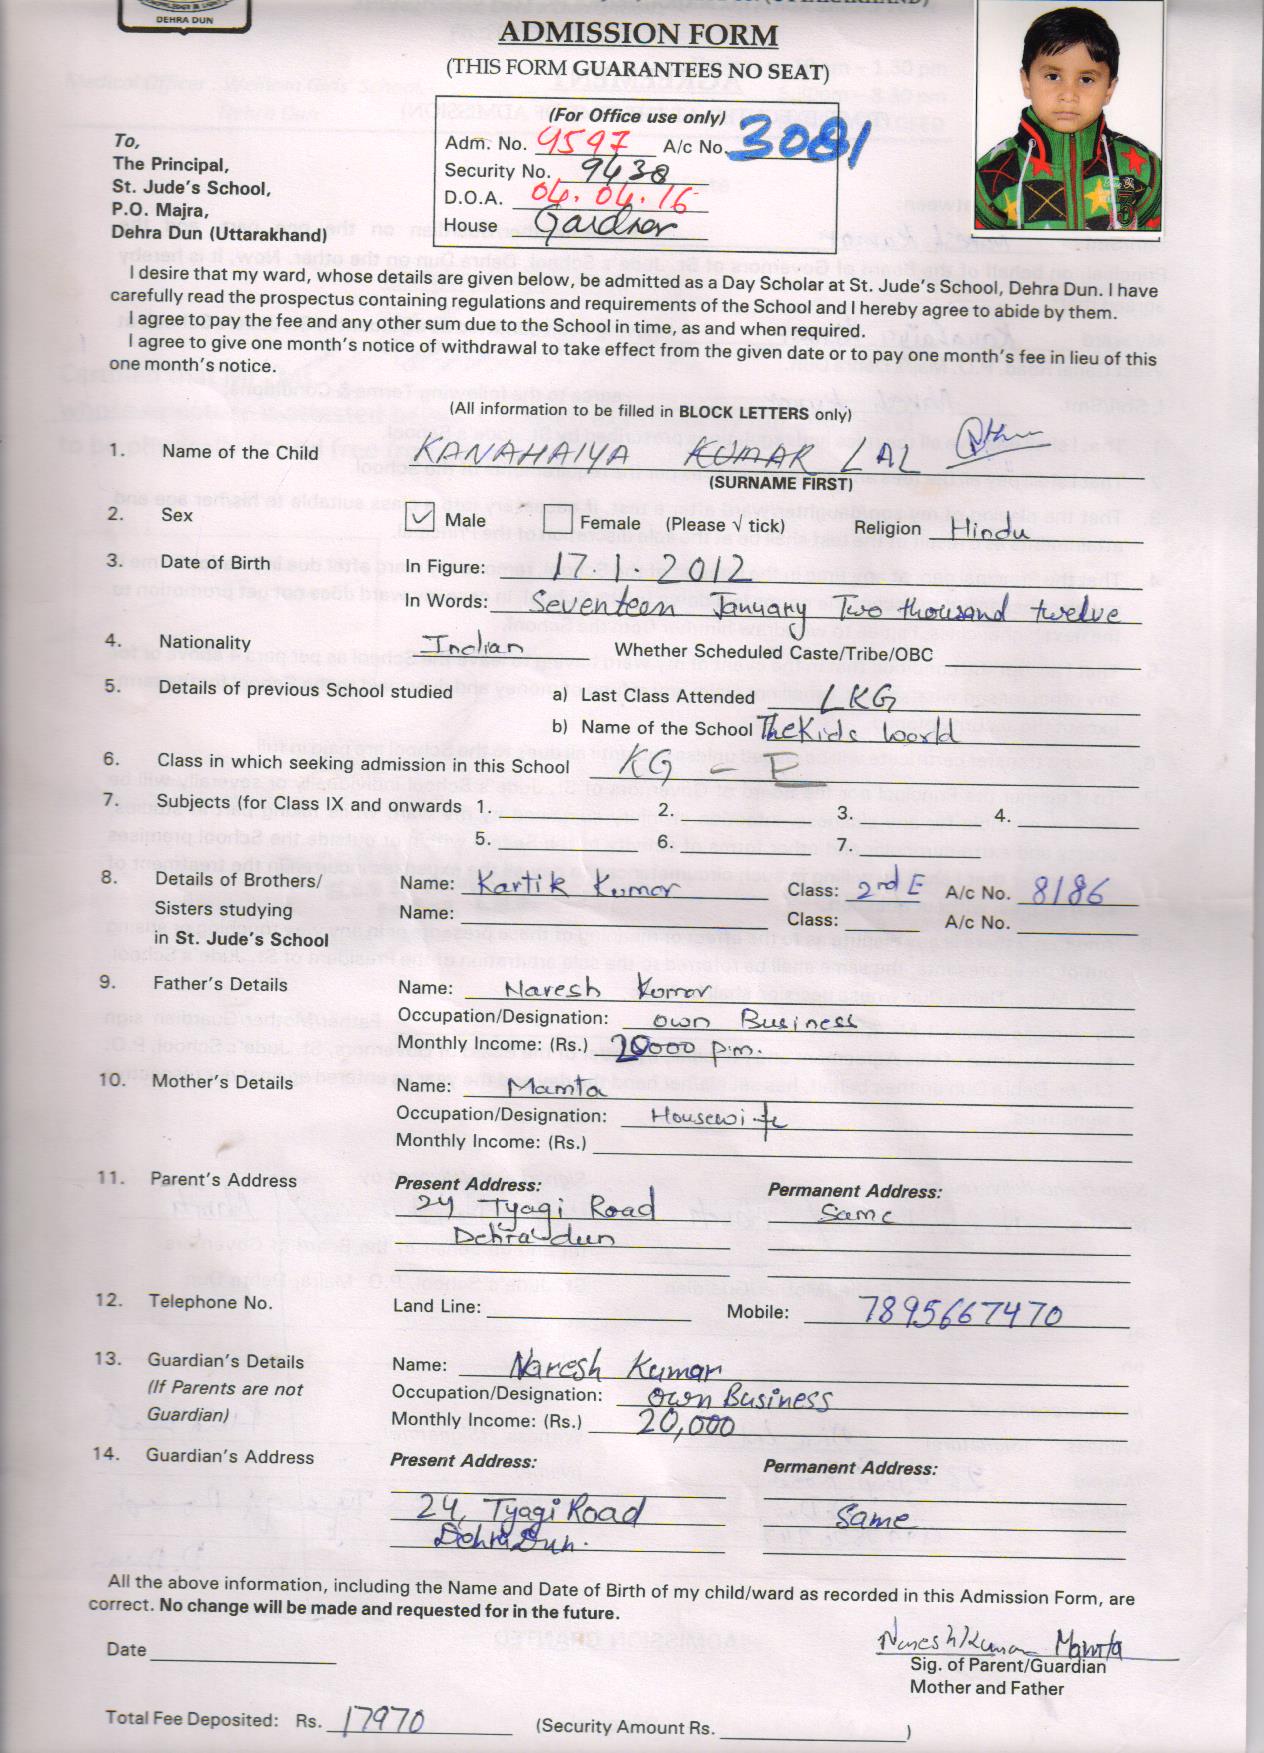 DEHRA DUN
ADMISSION FORM
(THIS FORM GUARANTEES NO SEAT)
(For Office use only)
Adm. No. 9597 A/c No. 3081
Security No. 9438
D.O.A. 04.04.16
House Gardner
To,
The Principal,
St. Jude's School,
P.O. Majra,
Dehra Dun (Uttarakhand)
I desire that my ward, whose details are given below, be admitted as a Day Scholar at St. Jude's School, Dehra Dun. I have
carefully read the prospectus containing regulations and requirements of the School and I hereby agree to abide by them.
I agree to pay the fee and any other sum due to the School in time, as and when required.
I agree to give one month's notice of withdrawal to take effect from the given date or to pay one month's fee in lieu of this
one month's notice.
(All information to be filled in BLOCK LETTERS only)
1. Name of the Child KANAHAIYA KUMAR LAL
(SURNAME FIRST)
2. Sex Male Female (Please √ tick) Religion Hindu
3. Date of Birth In Figure: 17.1.2012
In Words: Seventeen January Two thousand twelve
4. Nationality Indian Whether Scheduled Caste/Tribe/OBC
5. Details of previous School studied a) Last Class Attended LKG
b) Name of the School The Kids World
6. Class in which seeking admission in this School KG - E
7. Subjects (for Class IX and onwards 1. 2. 3. 4.
5. 6. 7.
8. Details of Brothers/ Name: Kartik Kumar Class: 2nd E A/c No. 8186
Sisters studying Name: Class: A/c No.
in St. Jude's School
9. Father's Details Name: Naresh Kumar
Occupation/Designation: own Business
Monthly Income: (Rs.) 20000 p.m.
10. Mother's Details Name: Mamta
Occupation/Designation: Housewife
Monthly Income: (Rs.)
11. Parent's Address Present Address: Permanent Address:
24 Tyagi Road Same
Dehradun
12. Telephone No. Land Line: Mobile: 7895667470
13. Guardian's Details Name: Naresh Kumar
(If Parents are not Occupation/Designation: Own Business
Guardian) Monthly Income: (Rs.) 20,000
14. Guardian's Address Present Address: Permanent Address:
24, Tyagi Road Same
Dehra Dun.
All the above information, including the Name and Date of Birth of my child/ward as recorded in this Admission Form, are
correct. No change will be made and requested for in the future.
Naresh Kumar Mamta
Date Sig. of Parent/Guardian
Mother and Father
Total Fee Deposited: Rs. 17970 (Security Amount Rs. )